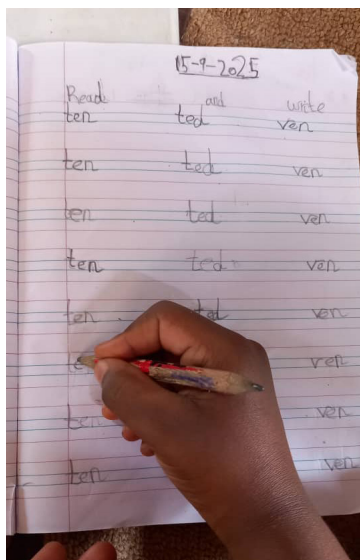 15-9-2025
Read and write
ten ted ven
ten ted ven
ten ted ven
ten ted ven
ten ted ven
ven
ten ven
ten ven